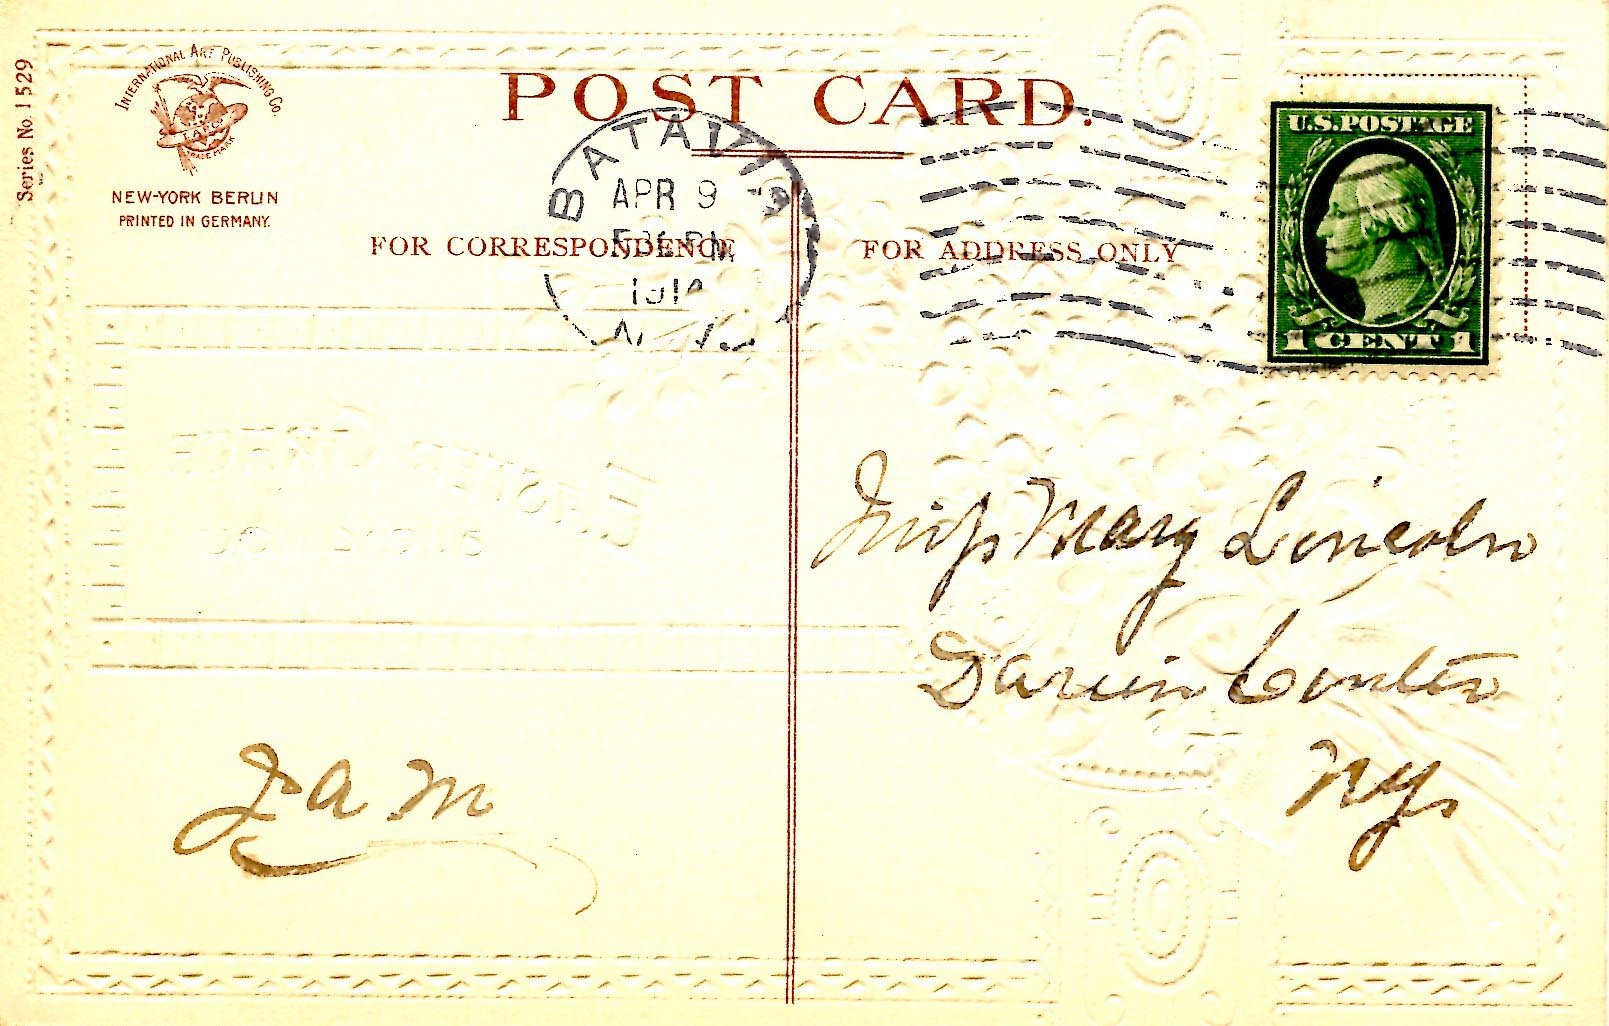 Series No. 1529
INTERNATIONAL ART PUBLISHING CO.
TRADE MARK
NEW-YORK BERLIN
PRINTED IN GERMANY.
POST CARD.
BATAVIA
APR 9
PM
N.Y.
FOR CORRESPONDENCE
FOR ADDRESS ONLY
U.S.POSTAGE
1 CENT 1
Miss Mary Lincoln
Darien Center
N.Y.
J. a. m